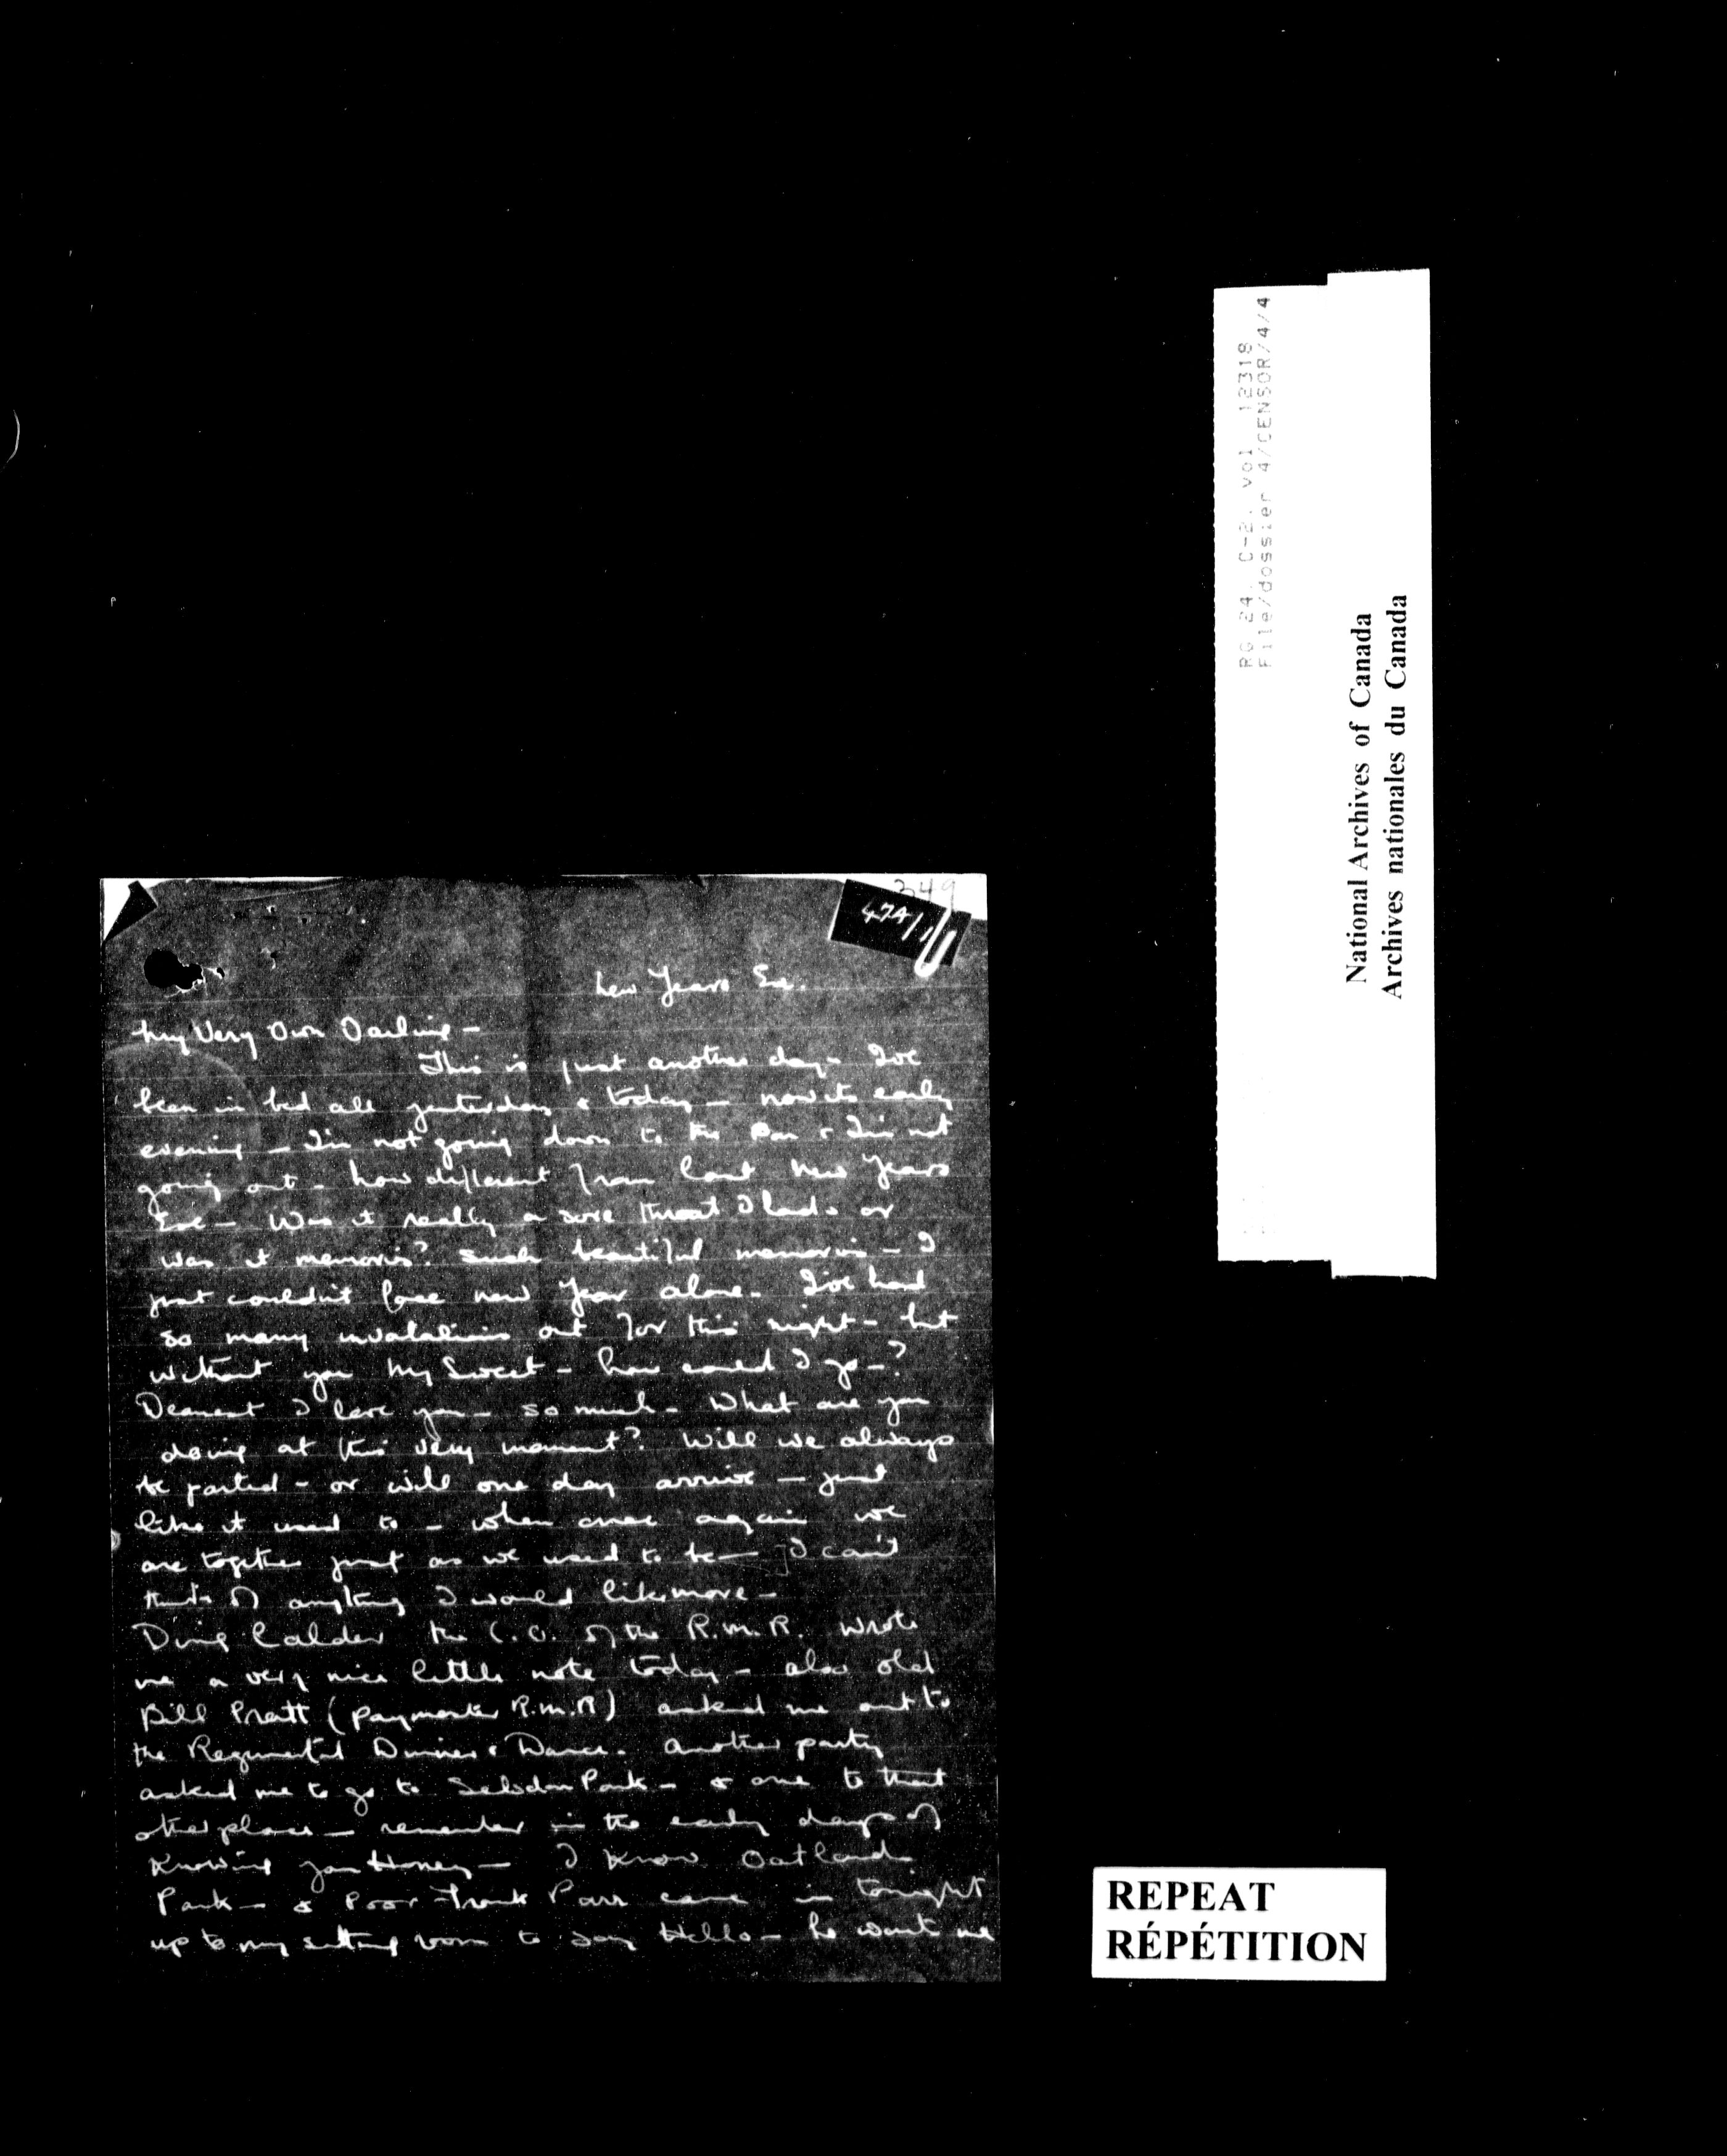 349
474/1
New Years Eve.
My Very Own Darling -
This is just another day - I've
been in bed all yesterday & today - now its early
evening - I'm not going down to the Bar & I'm not
going out - how different from last New Years
Eve - Was it really a sore throat I had - or
was it memories? Such beautiful memories - I
just couldn't face new Year alone - I've had
so many invatations out for this night - but
without you My Sweet - how could I go - ?
Dearest I love you - so much - What are you
doing at this very moment? Will we always
be parted - or will one day arrive - just
like it used to - when once again we
are together just as we used to be - I can't
think of anything I would like more -
Calder the C.O. of the R.M.R. wrote
me a very nice little note today - also old
Bill Pratt (paymaster R.M.R) asked me out to
the Regimental Dinner & Dance - Another party
asked me to go to Selsdon Park - & one to that
other place - remember in the early days of
knowing you Honey - I know Oatlands
Park - & Poor Frank Parr came in tonight
up to my sitting room to say Hello - he wants me
RG 24, C-2, vol 12318
File/dossier 4/CENSOR/4/4
National Archives of Canada
Archives nationales du Canada
REPEAT
RÉPÉTITION